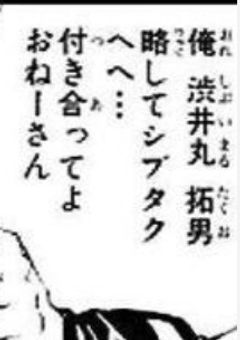 俺 渋井丸 拓男
略してシブタク
へへ…
付き合ってよ
おねーさん